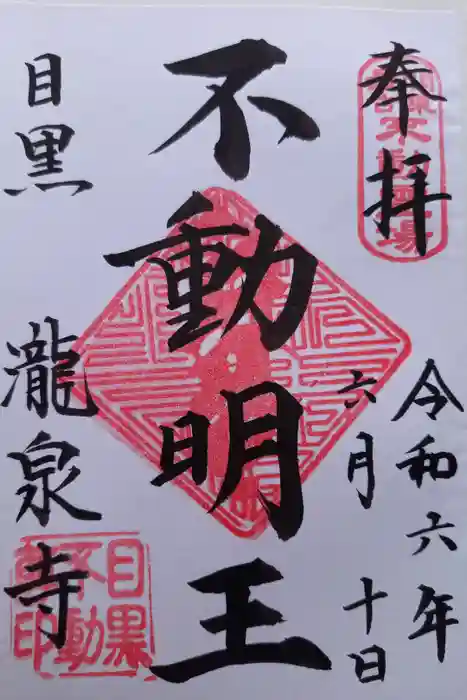 奉拝
令和六年
六月十日
不動明王
目黒
瀧泉寺
目黒
不動